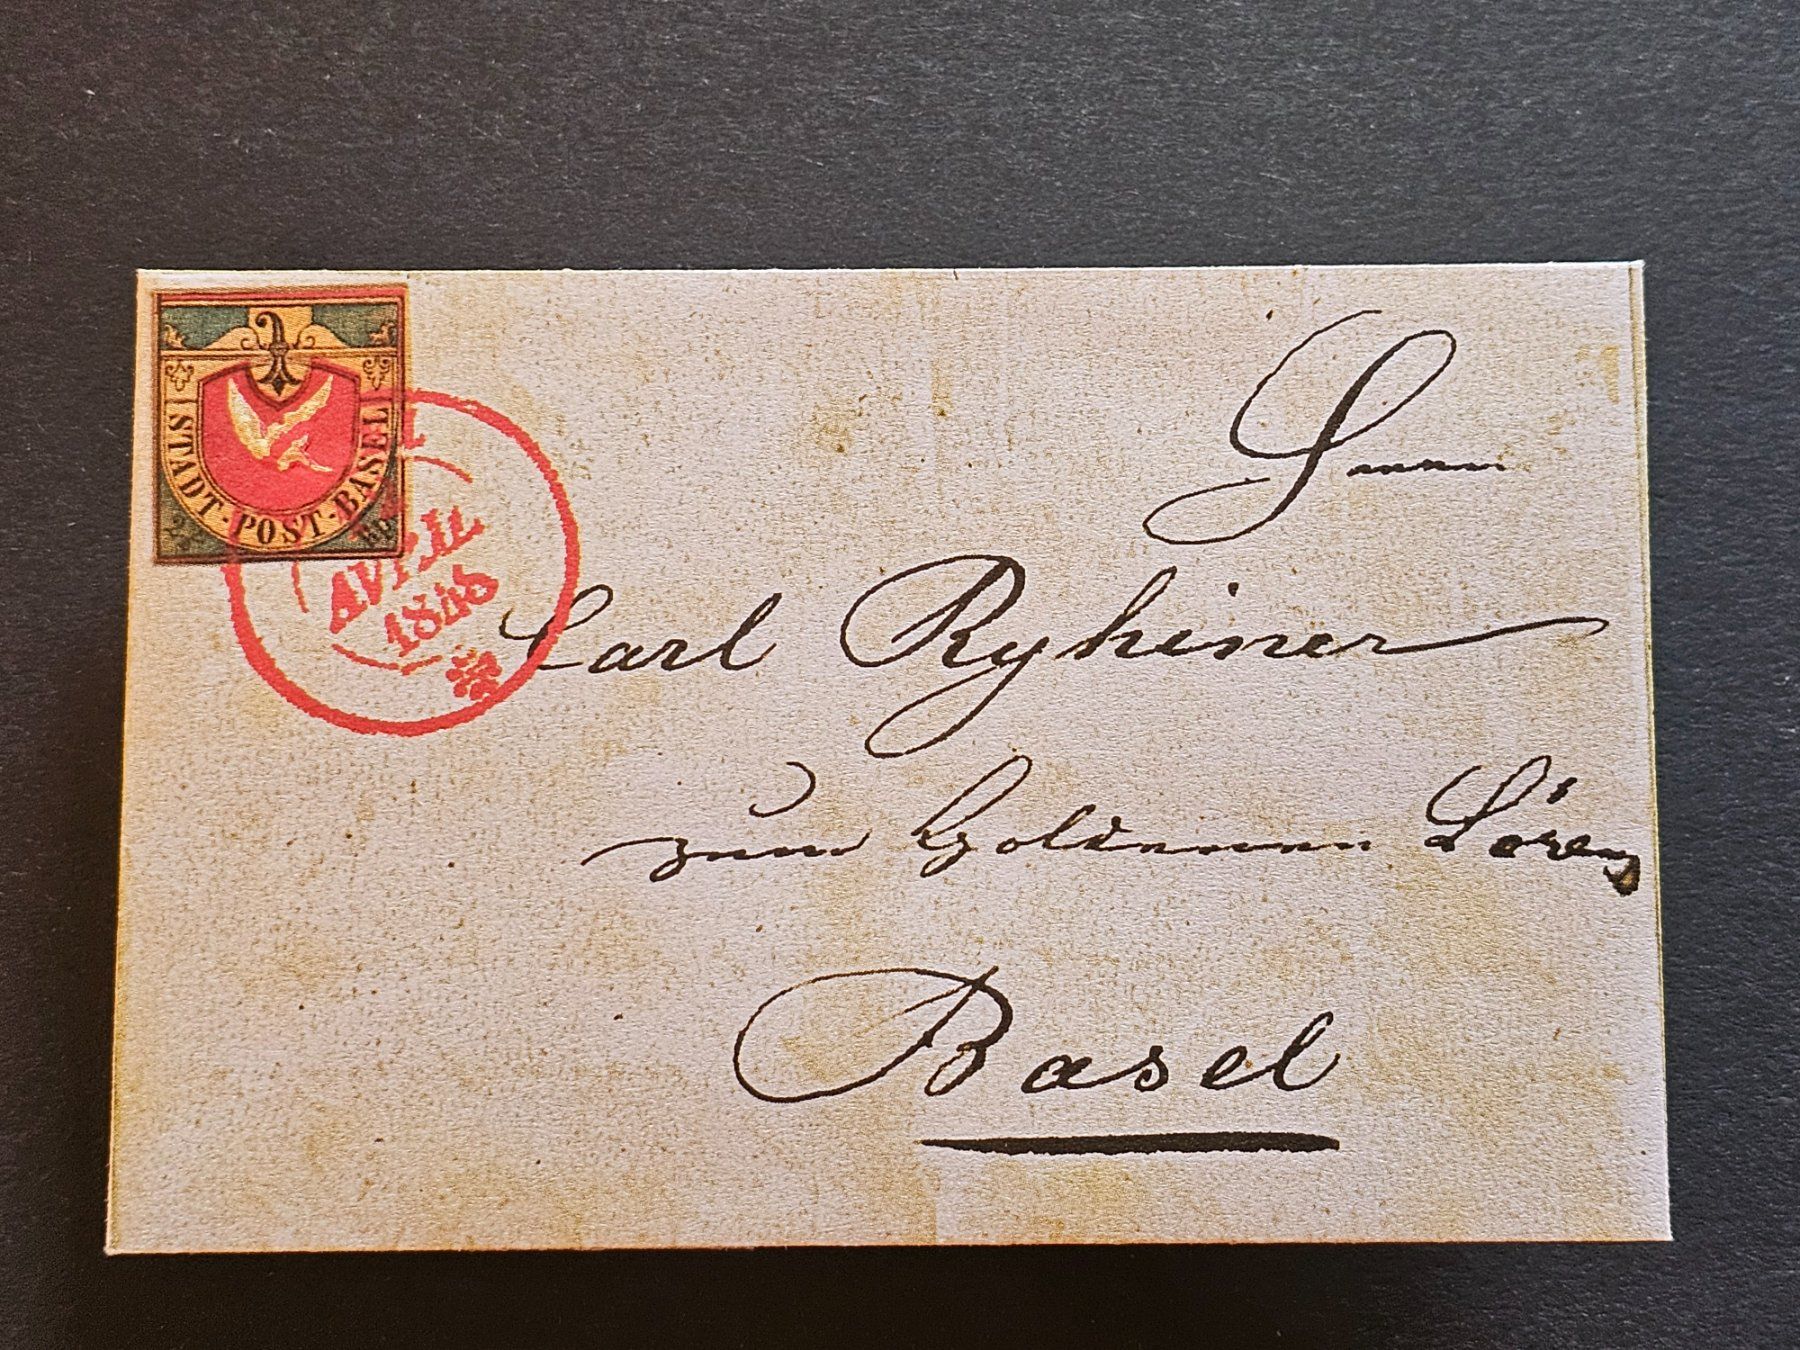 STADT · POST · BASEL
2½ Rp.
AVRIL
1848
Herrn
Carl Ryhiner
zum Goldenen Löwen
Basel